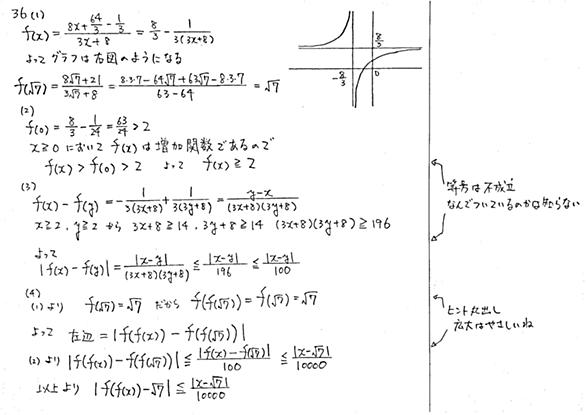 36 (1)
f(x) = (8x + 64/3 - 1/3)/(3x+8) = 8/3 - 1/(3(3x+8))
よって グラフは右図のようになる
8/3
-8/3
0
f(√7) = (8√7+21)/(3√7+8) = (8·3·7 - 64√7 + 63√7 - 8·3·7)/(63-64) = √7
(2)
f(0) = 8/3 - 1/24 = 63/24 > 2
x≧0 において f(x) は増加関数であるので
f(x) > f(0) > 2 よって f(x) ≧ 2
(3)
f(x) - f(y) = - 1/(3(3x+8)) + 1/(3(3y+8)) = (y-x)/((3x+8)(3y+8))
x≧2, y≧2 から 3x+8≧14, 3y+8≧14 (3x+8)(3y+8)≧196
等号は不成立
なんでついているのかは知らない
よって
|f(x) - f(y)| = |x-y|/((3x+8)(3y+8)) ≦ |x-y|/196 ≦ |x-y|/100
(4)
(1)より f(√7) = √7 だから f(f(√7)) = f(√7) = √7
ヒント丸出し
広大はやさしいね
よって 左辺 = |f(f(x)) - f(f(√7))|
(2)より |f(f(x)) - f(f(√7))| ≦ |f(x) - f(√7)|/100 ≦ |x-√7|/10000
以上より |f(f(x)) - √7| ≦ |x-√7|/10000